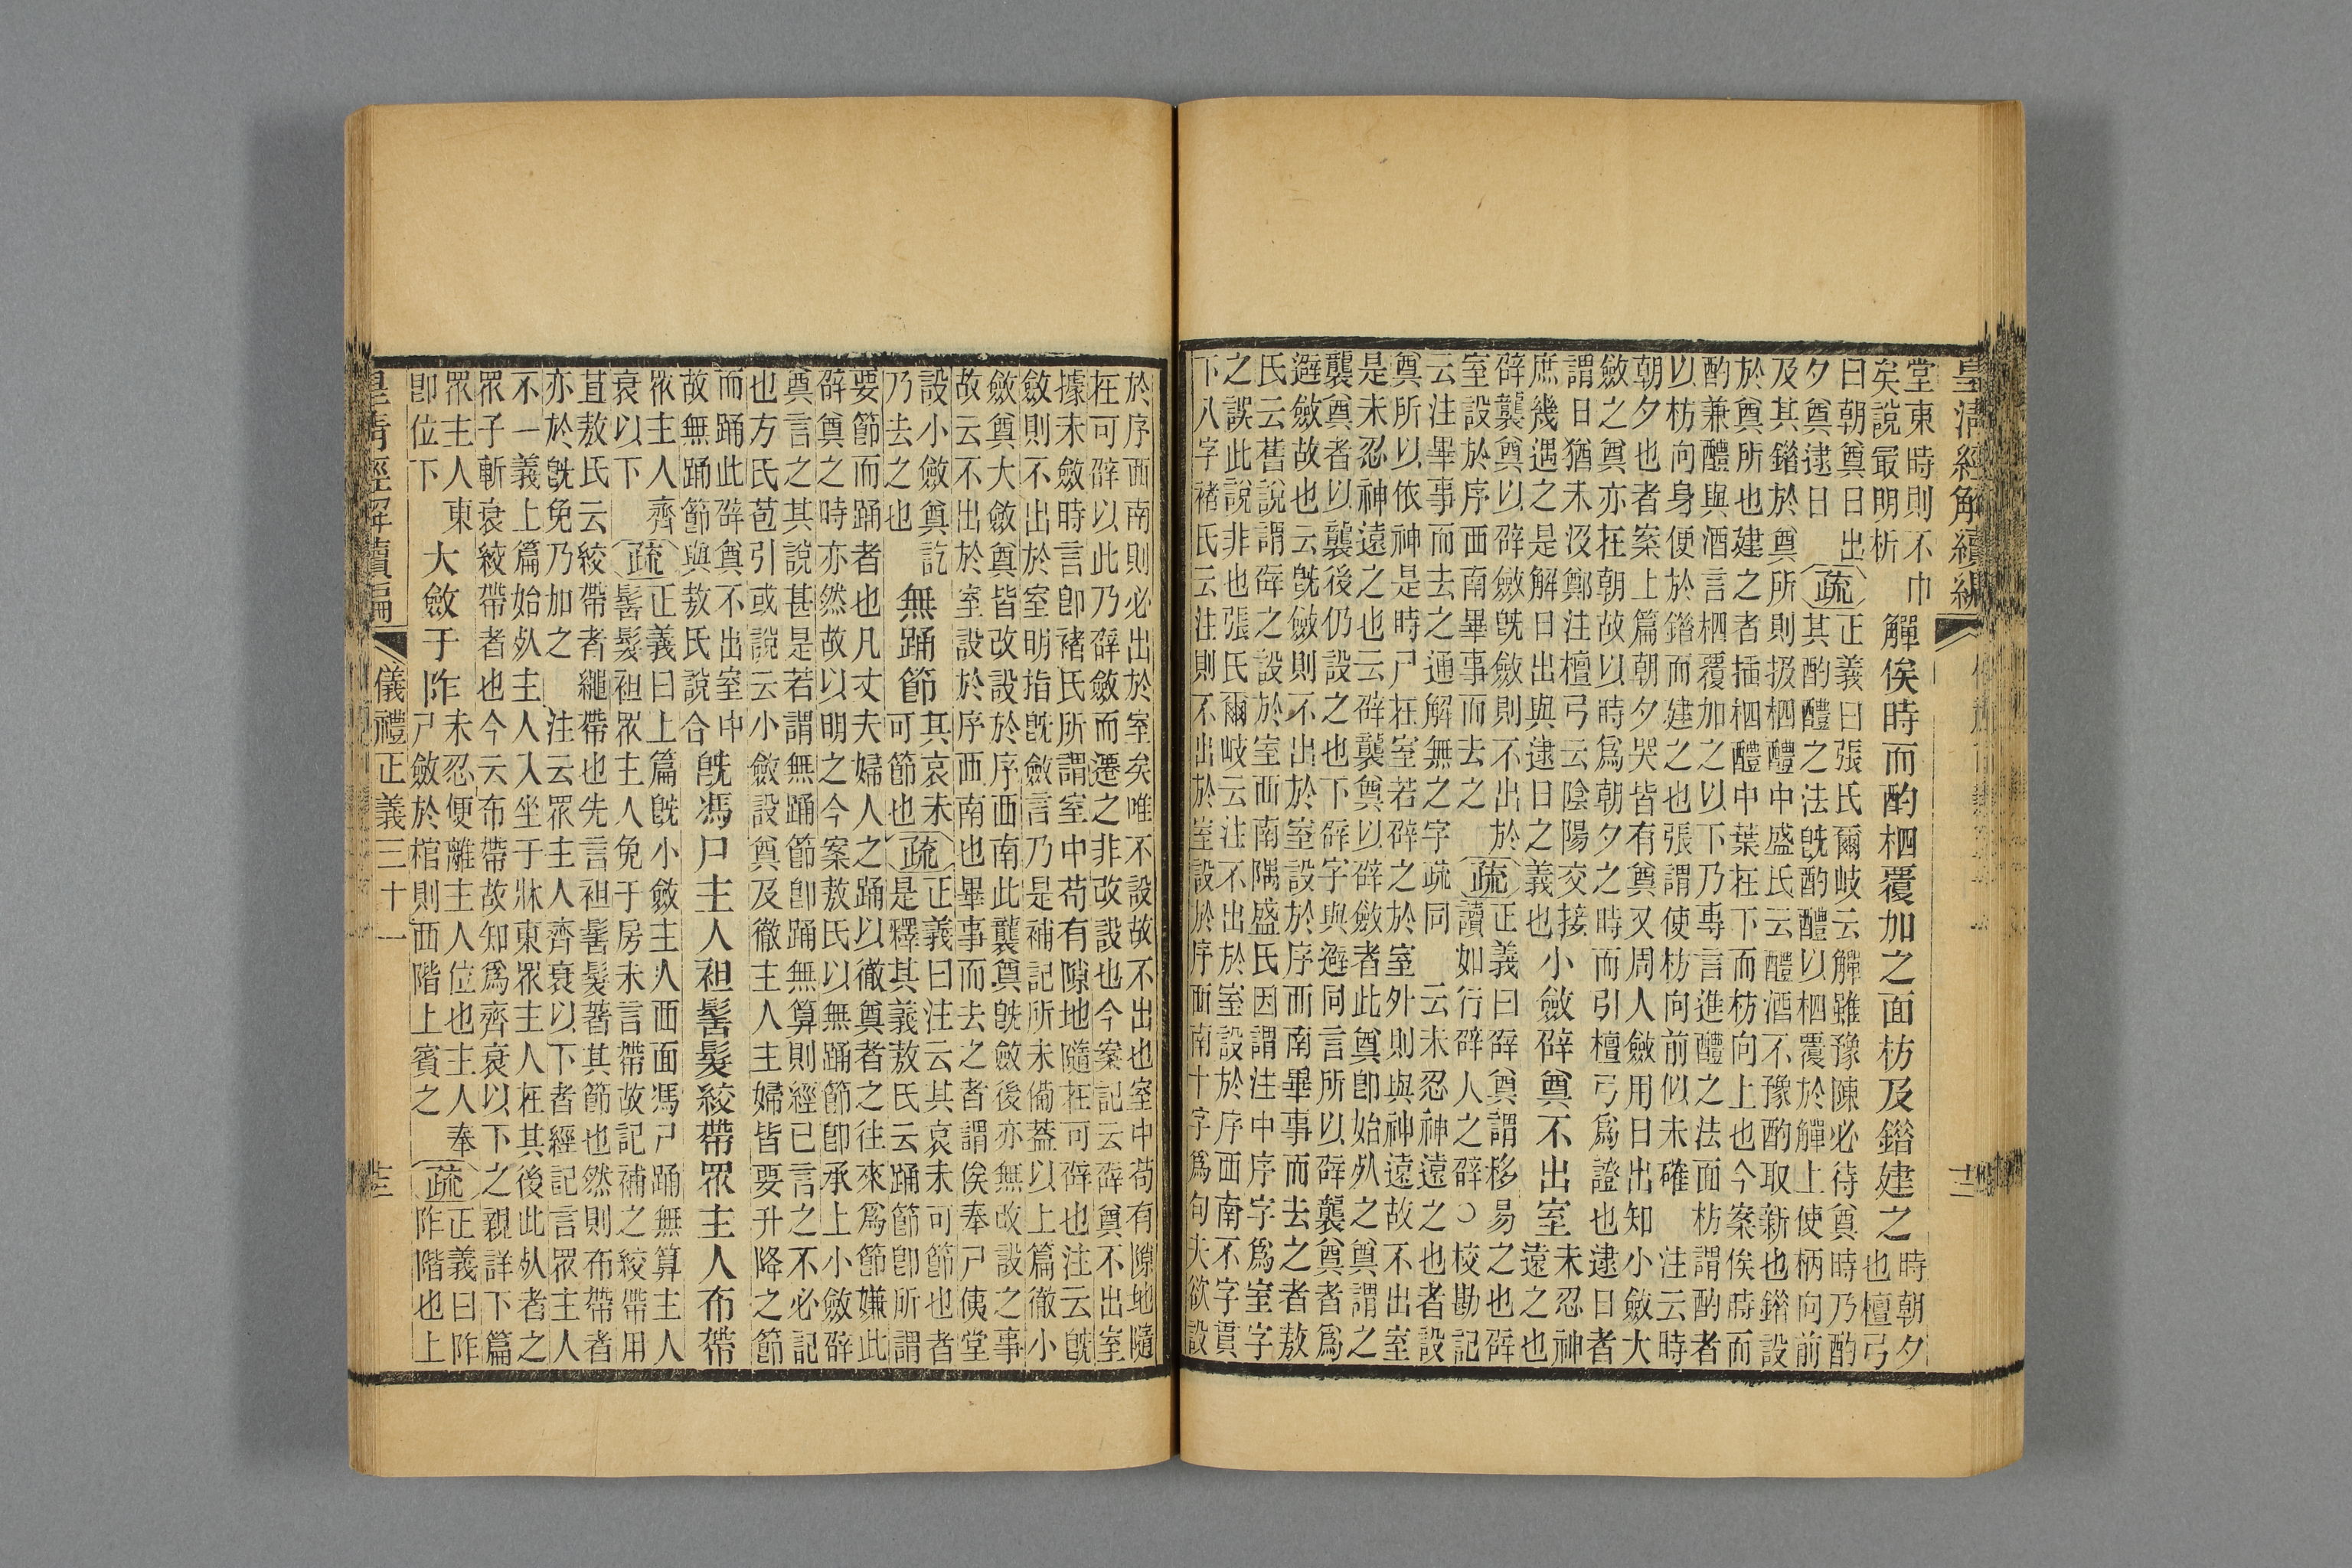 皇清經解續編
堂東時則不巾
矣說最明析
觶俟時而酌柶覆加之面枋及錔建之
時朝夕
也檀弓
曰朝奠日出
夕奠逮日
疏
正義曰張氏爾岐云觶雖豫陳必待奠時乃酌
其酌醴之法既酌醴以柶覆於觶上使柄向前
及其錔於奠所則扱柶醴中盛氏云醴酒不豫酌取新也錔設
於奠所也建之者插柶醴中葉在下而枋向上也今案俟時而
酌兼醴與酒言柶覆加之以下乃專言進醴之法面枋謂酌者
以枋向身便於錔而建之也張謂使枋向前似未確注云時
朝夕也者案上篇朝夕哭皆有奠又周人斂用日出知小斂大
斂之奠亦在朝故以時爲朝夕之時而引檀弓爲證也逮日者
謂日猶未沒鄭注檀弓云陰陽交接
庶幾遇之是解日出與逮日之義也
小斂辟奠不出室
未忍神
遠之也
辟襲奠以辟斂既斂則不出於
室設於序西南畢事而去之
疏
正義曰辟奠謂移易之也辟
讀如行辟人之辟○校勘記
云注畢事而去之通解無之字疏同 云未忍神遠之也者設
奠所以依神是時尸在室若辟之於室外則與神遠故不出室
是未忍神遠之也云辟襲奠以辟斂者此奠即始死之奠謂之
襲奠者以襲後仍設之也下辟字與避同言所以辟襲奠者爲
避斂故也云既斂則不出於室設於序西南畢事而去之者敖
氏云舊說謂辟之設於室西南隅盛氏因謂注中序字爲室字
之誤此說非也張氏爾岐云注不出於室設於序西南不字貫
下八字褚氏云注則不出於室設於序西南十字爲句夫欲設
於序西南則必出於室矣唯不設故不出也室中苟有隙地隨
在可辟以此乃辟斂而遷之非改設也今案記云辟奠不出室
據未斂時言即褚氏所謂室中苟有隙地隨在可辟也注云既
斂則不出於室明指既斂言乃是補記所未備葢以上篇徹小
斂奠大斂奠皆改設於序西南此襲奠既斂後亦無改設之事
故云不出於室設於序西南也畢事而去之者謂俟奉尸侇堂
設小斂奠訖
乃去之也
無踊節
其哀未
可節也
疏
正義曰注云其哀未可節也者
是釋其義敖氏云踊節即所謂
要節而踊者也凡丈夫婦人之踊以徹奠者之往來爲節嫌此
辟奠之時亦然故以明之今案敖氏以無踊節即承上小斂辟
奠言之其說甚是若謂無踊節即踊無算則經已言之不必記
也方氏苞引或說云小斂設奠及徹主人主婦皆要升降之節
而踊此辟奠不出室中
故無踊節與敖氏說合
既馮尸主人袒髺髮絞帶眾主人布帶
眾主人齊
衰以下
疏
正義曰上篇既小斂主人西面馮尸踊無算主人
髺髮袒眾主人免于房未言帶故記補之絞帶用
苴敖氏云絞帶者繩帶也先言袒髺髮著其節也然則布帶者
亦於既免乃加之 注云眾主人齊衰以下者經記言眾主人
不一義上篇始死主人入坐于牀東眾主人在其後此死者之
眾子斬衰絞帶者也今云布帶故知爲齊衰以下之親詳下篇
眾主人東
即位下
大斂于阼
未忍便離主人位也主人奉
尸斂於棺則西階上賓之
疏
正義曰阼
階也上
皇清經解續編
儀禮正義三十一